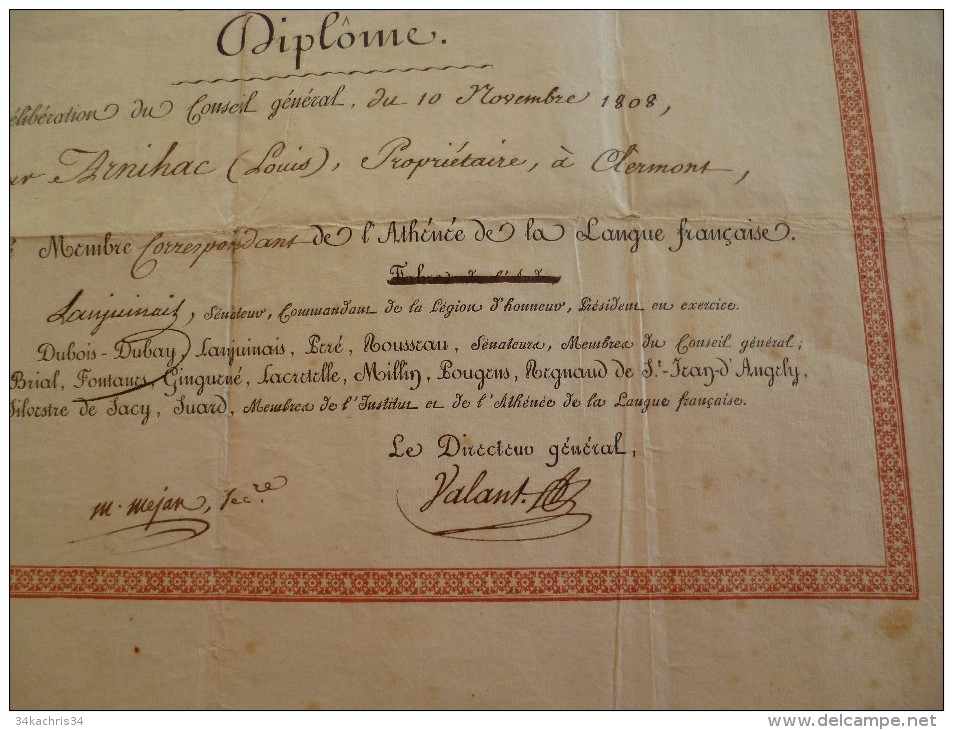 Diplôme.
élibération du Conseil général, du 10 Novembre 1808,
Arnihac (Louis), Propriétaire, à Clermont,
Membre Correspondant de l'Athénée de la Langue française.
Lanjuinais, Sénateur, Commandant de la Légion d'honneur, Président en exercice.
Dubois-Dubay, Lanjuinais, Peré, Rousseau, Sénateurs, Membres du Conseil général;
Brial, Fontanes, Ginguené, Lacretelle, Millin, Pougens, Regnaud de St-Jean-d'Angely,
Silvestre de Sacy, Suard, Membres de l'Institut et de l'Athénée de la Langue française.
Le Directeur général,
M. Mejan, Secre.
Valant.
34kachris34
www.delcampe.net